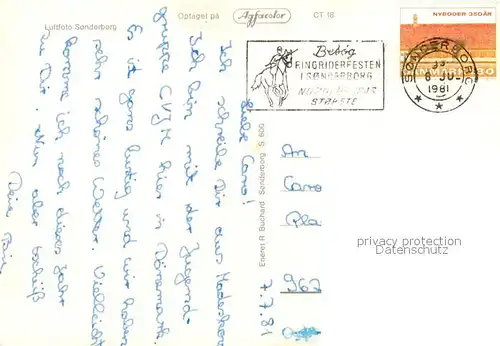 Luftfoto Sønderborg
Optaget på Agfacolor CT 18
Besøg
RINGRIDERFESTEN
I SØNDERBORG
STØRSTE
NYBODER 350 ÅR
SØNDERBORG
1981
Eneret R. Buchard Sønderborg S 600
Liebe Caro!
Ich schreibe Dir aus
Ich bin mit der Jugend-
gruppe CVJM hier in Dänemark.
Es ist ganz lustig und wir haben
sehr schönes Wetter. Vielleicht
komme ich noch dieses Jahr
zu Dir. Nun aber
Deine
7.7.81
An
Caro
Pla
967
privacy protection
Datenschutz